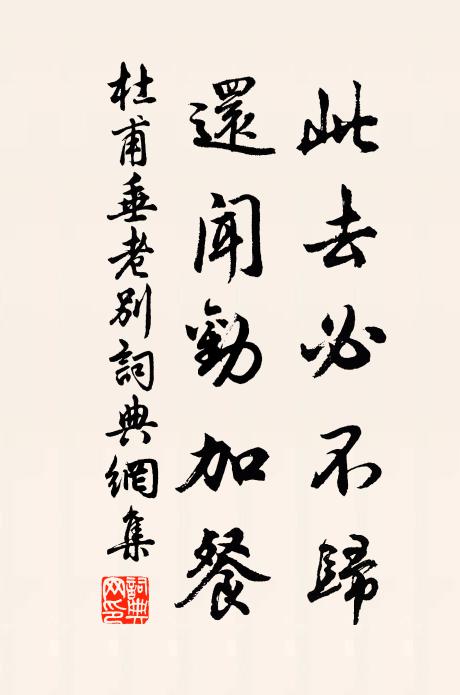 此去必不歸
還聞勸加餐
杜甫垂老別詞典網集
詞典网印